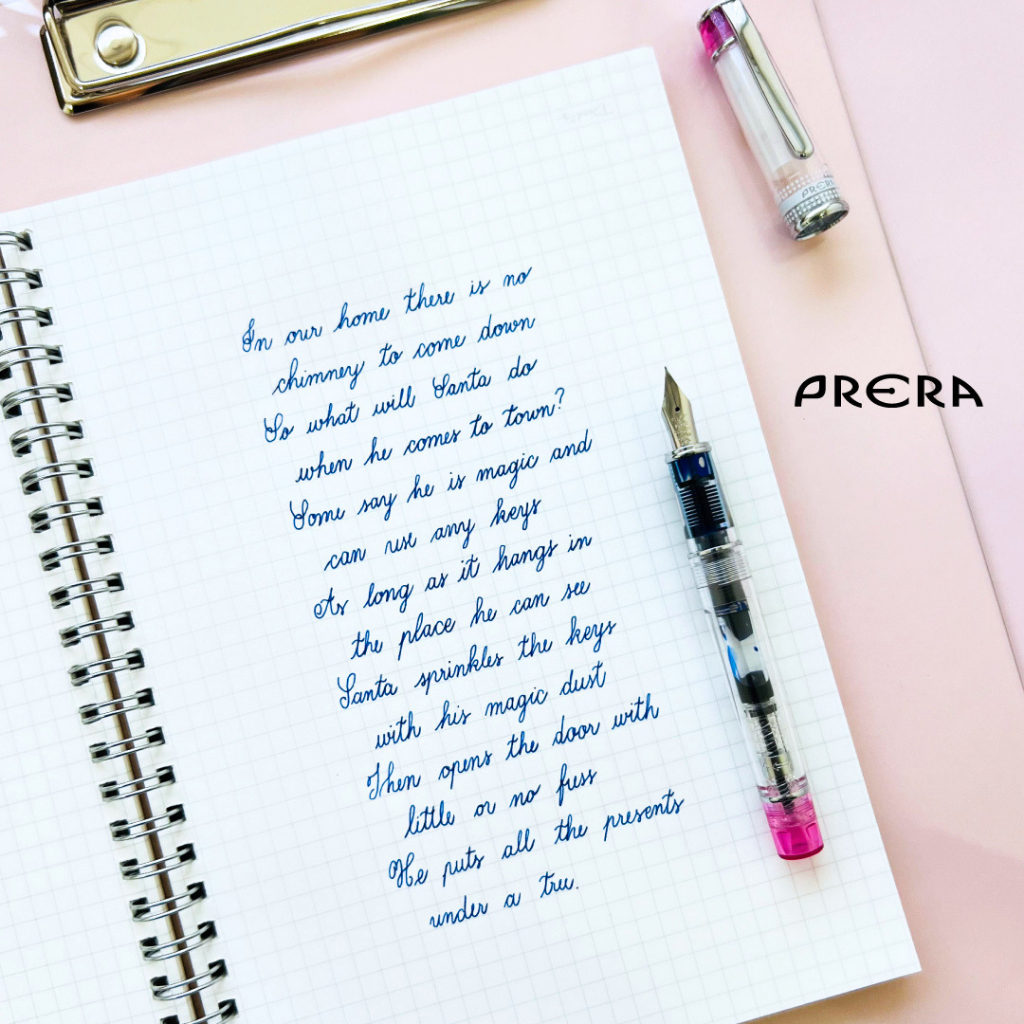 PRERA
PRERA
In our home there is no
chimney to come down
So what will Santa do
when he comes to town?
Some say he is magic and
can use any keys
As long as it hangs in
the place he can see
Santa sprinkles the keys
with his magic dust
Then opens the door with
little or no fuss
He puts all the presents
under a tree.